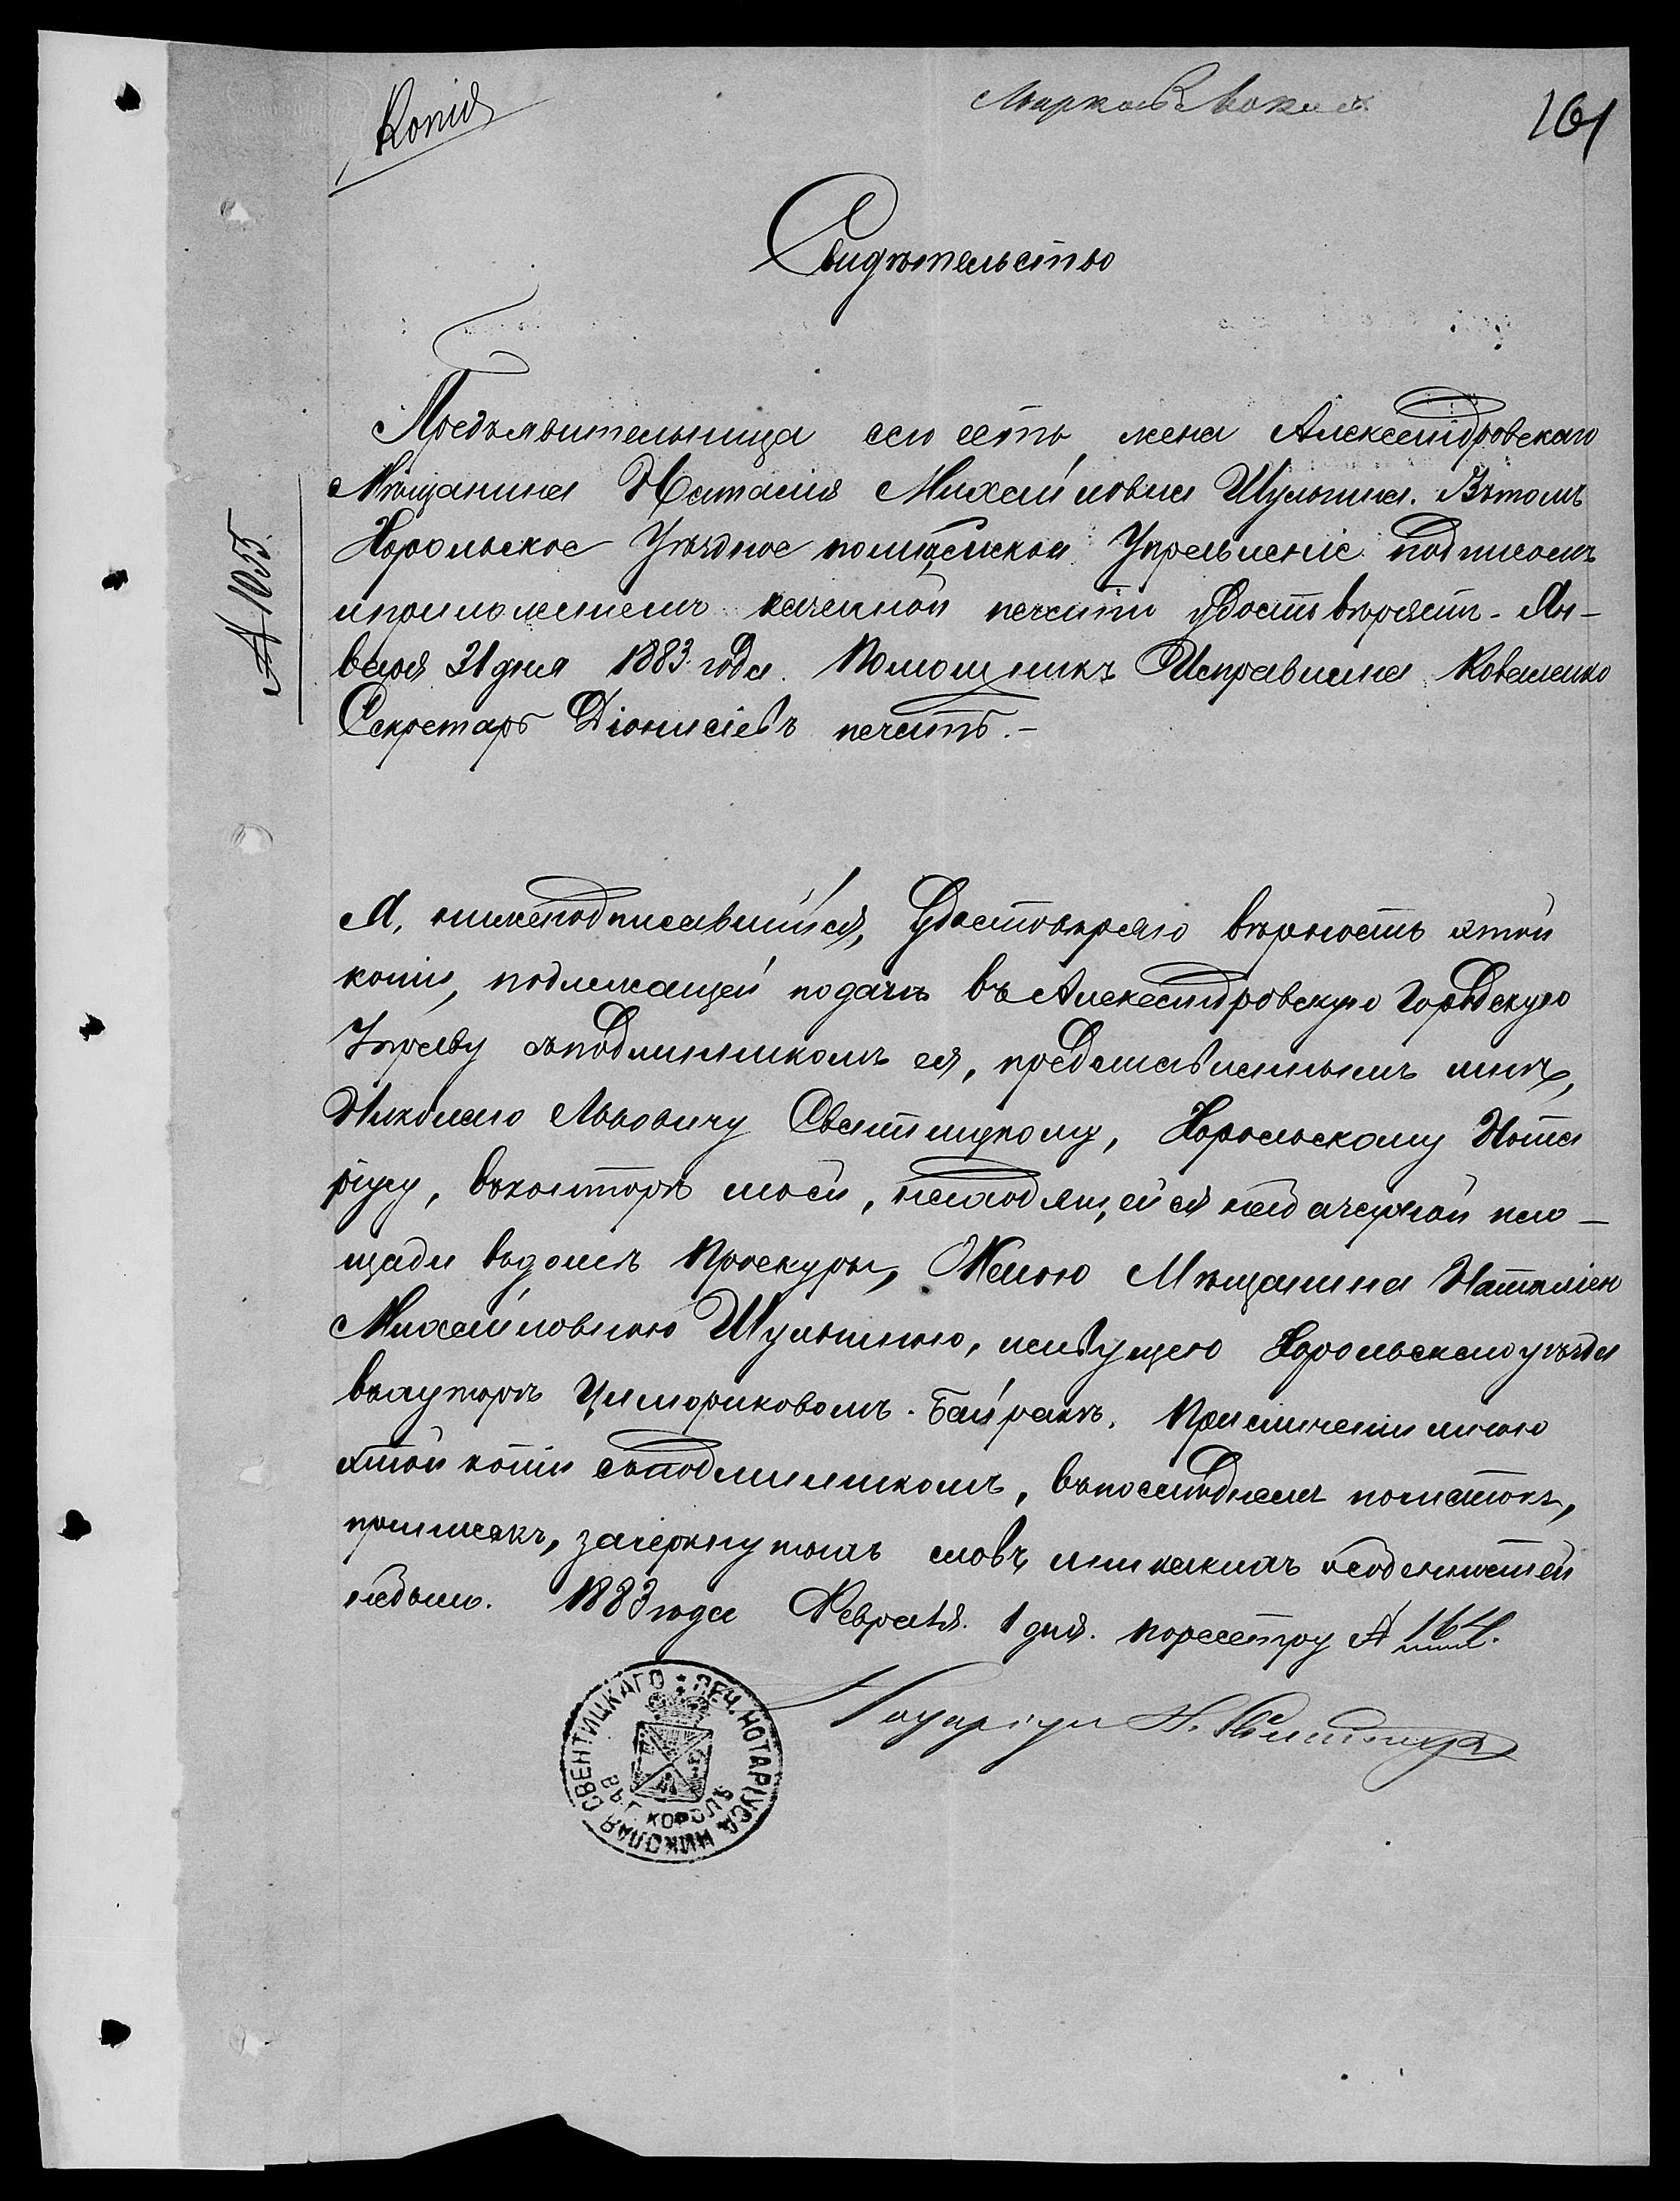 Копія
161
Свидѣтельство
№ 1055.
Предъявительница сего есть жена Александровскаго
Мѣщанина Наталія Михайловна Шульгина. Въ томъ
Хорольское Уѣздное полицейское Управленіе подписомъ
и приложеніемъ казенной печати удостовѣряетъ. Ян-
варя 31 дня 1883 года. Помощникъ Исправника Коваленко
Секретарь Діонисіевъ печать.-
Я, нижеподписавшійся, удостовѣряю вѣрность этой
копіи, подлежащей подачѣ въ Александровскую Городскую
Управу съ подлинникомъ ея, представленнымъ мнѣ,
Николаю Львовичу Свентицкому, Хорольскому Нота
ріусу, въ конторѣ моей, находящейся на базарной пло-
щади въ домѣ Проскуры, Женою Мѣщанина Наталіею
Михайловною Шульгиною, живущею Хорольскаго уѣзда
въ хуторѣ Байракѣ. При сличеніи мною
этой копіи съ подлинникомъ, въ послѣднемъ помѣтокъ,
приписокъ, зачеркнутыхъ словъ и никакихъ особенностей
небыло. 1883 года Февраля 1 дня. по реестру № 164.
Нотаріусъ Н. Свентицкій
ПЕЧ. НОТАРІУСА НИКОЛАЯ СВЕНТИЦКАГО
ВЪ Г. ХОРОЛѢ